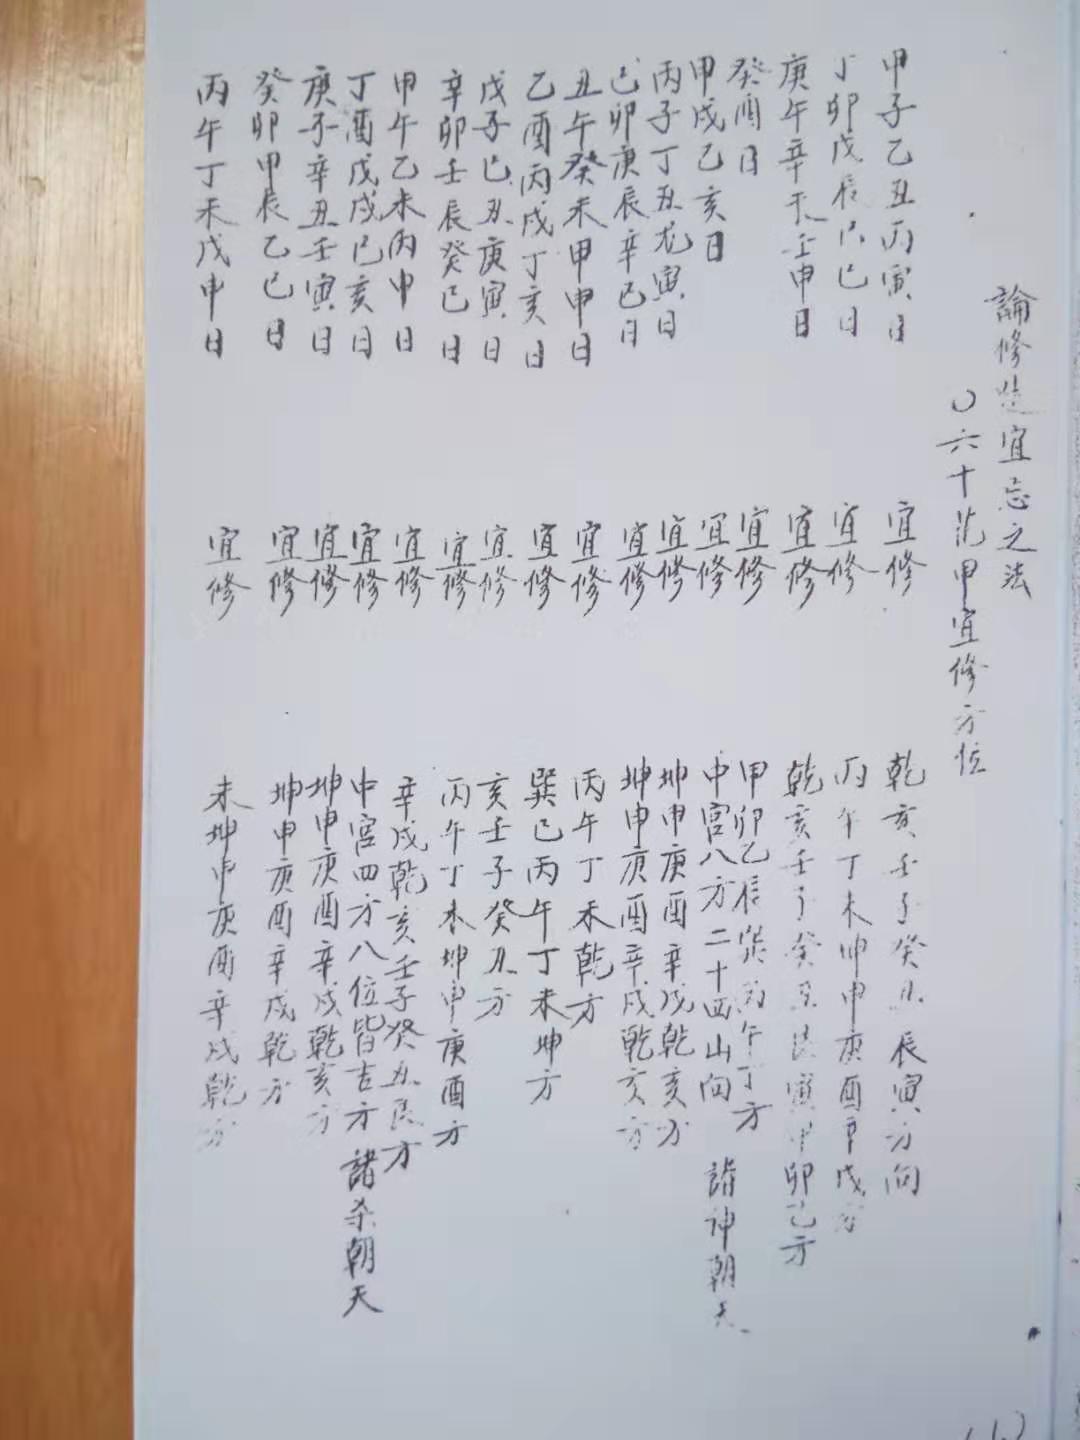 論修造宜忌之法
〇六十花甲宜修方位
甲子乙丑丙寅日 宜修 乾亥壬子癸丑辰寅方向
丁卯戊辰己巳日 宜修 丙午丁未坤申庚酉辛戌方
庚午辛未壬申日 宜修 乾亥壬子癸丑艮寅甲卯乙方
癸酉日 宜修 甲卯乙辰巽丙午丁方
甲戌乙亥日 宜修 中宮八方二十四山向 諸神朝天
丙子丁丑尤寅日 宜修 坤申庚酉辛戌乾亥方
己卯庚辰辛巳日 宜修 坤申庚酉辛戌乾亥方
丑午癸未甲申日 宜修 丙午丁未乾方
乙酉丙戌丁亥日 宜修 巽巳丙午丁未坤方
戊子己丑庚寅日 宜修 亥壬子癸丑方
辛卯壬辰癸巳日 宜修 丙午丁未坤申庚酉方
甲午乙未丙申日 宜修 辛戌乾亥壬子癸丑艮方
丁酉戊戌己亥日 宜修 中宮四方八位皆吉方 諸杀朝天
庚子辛丑壬寅日 宜修 坤申庚酉辛戌乾亥方
癸卯甲辰乙巳日 宜修 坤申庚酉辛戌乾方
丙午丁未戊申日 宜修 未坤申庚酉辛戌乾方